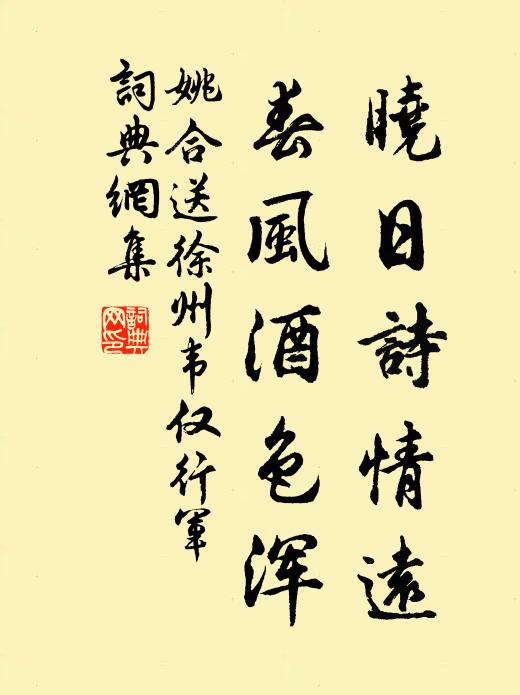 曉日詩情遠
春風酒色浑
姚合送徐州韦仅行軍
詞典網集
詞典網印